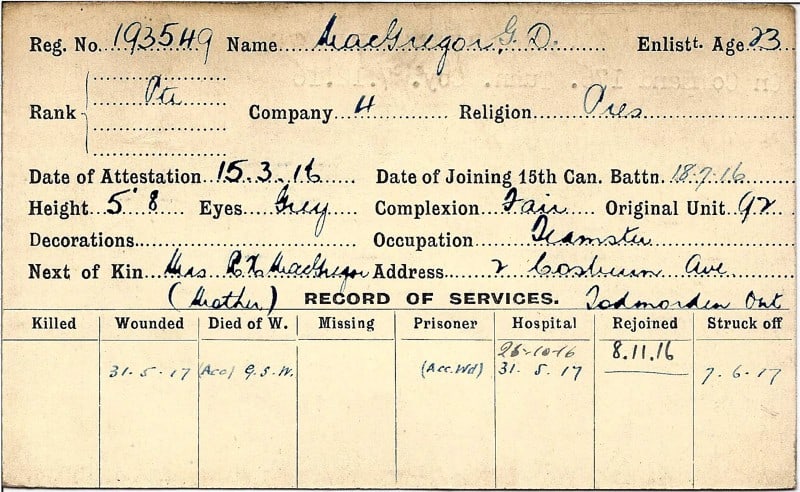 Reg. No. 193549 Name MacGregor, G. D. Enlistt. Age 23
Rank Pte Company 4 Religion Pres
Date of Attestation 15.3.16 Date of Joining 15th Can. Battn. 18.7.16
Height 5' 8 Eyes Grey Complexion Fair Original Unit 92
Decorations Occupation Teamster
Next of Kin Mrs MacGregor Address 2 Cosburn Ave
(Mother) RECORD OF SERVICES. Todmorden Ont
Killed Wounded Died of W. Missing Prisoner Hospital Rejoined Struck off
26-10-16 8.11.16
31.5.17 (Acc) G.S.W. (Acc. Wd) 31.5.17 7.6.17